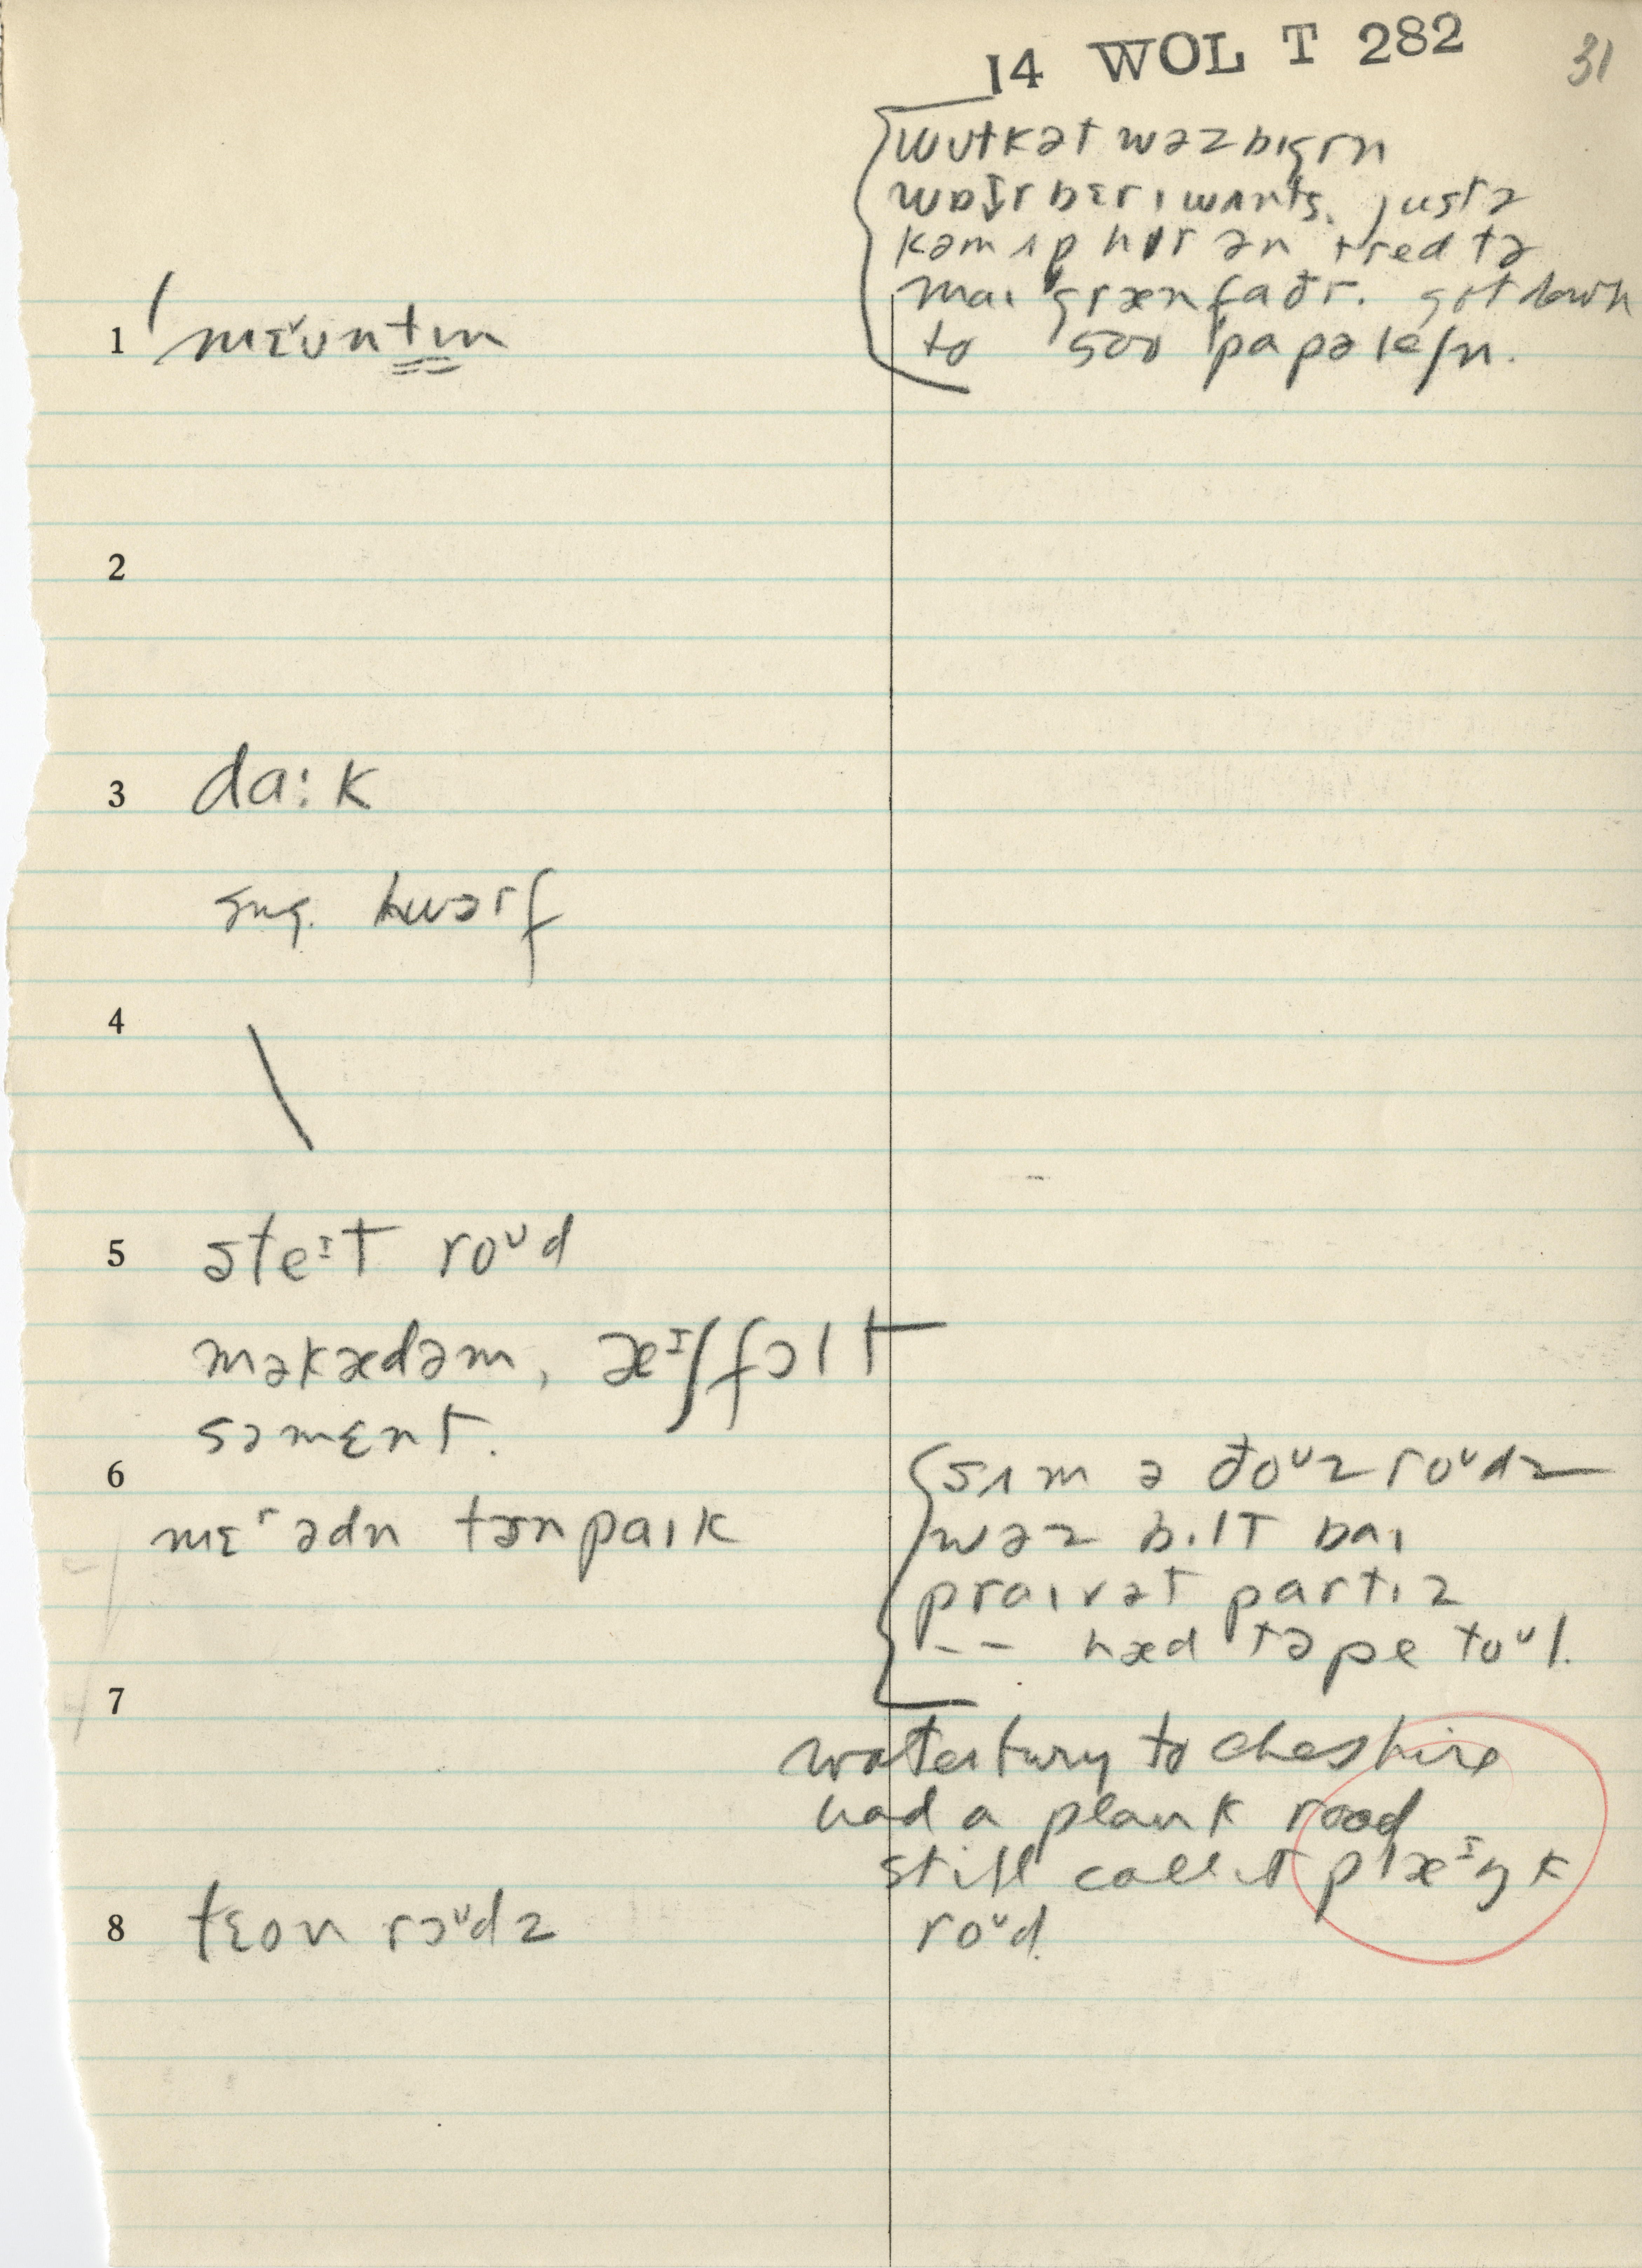 14 WOL T 282
31
wʊtkət wəz bɪgr n
wɒtr bɛrɪ wʌnts. justə
kəm ʌp hɪr ən tred tə
maɪ grænfaðr. got down
to 500 papəleʃn.
1 mɛᵛʊntɪn
2
3 da:k
sng. hwɔrf
4
5 steᶦt roᶷd
məkædəm, æᶦʃfɔlt
səmɛnt.
6
sʌm ə ðoᶷz roᶷdz
mɛʳədn tɜnpaɪk
wəz bɪlt baɪ
praɪvət partɪz
-- hæd tə pe toᶷl.
7
waterbury to cheshire
had a plank road
still call it plæᶦŋk
roᶷd
8 tɛon rɔᶷdz